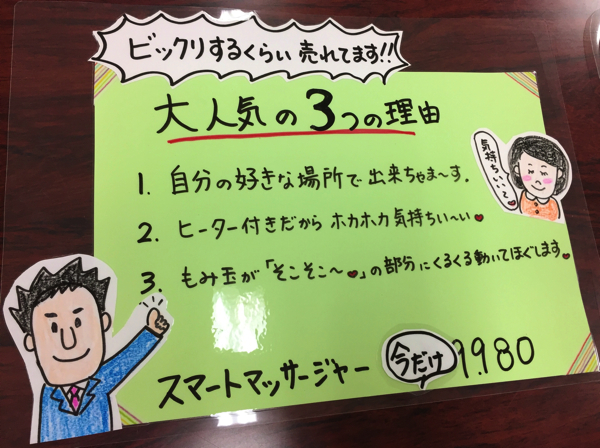 ビックリするくらい売れてます!!
大人気の3つの理由
気持ちいい〜♥
1. 自分の好きな場所で出来ちゃま〜す。
2. ヒーター付きだからホカホカ気持ちい〜い♥
3. もみ玉が「そこそこ〜♥」の部分にくるくる動いてほぐします♥
スマートマッサージャー 今だけ 1980